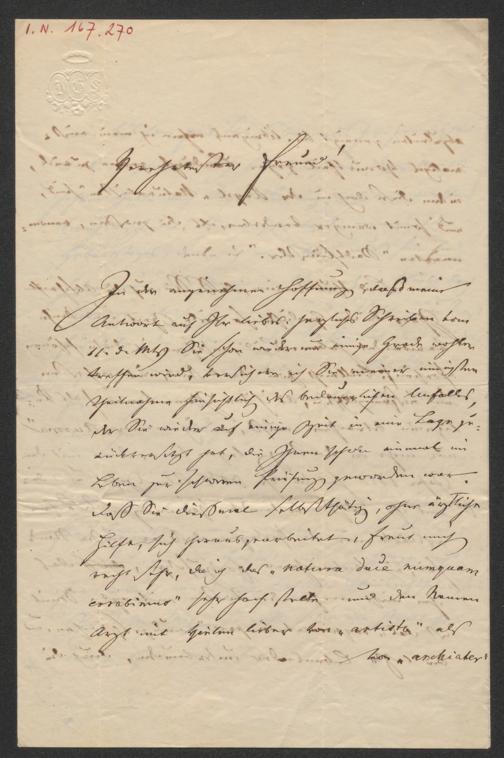 I. N. 167.270
Verehrtester Freund!
In der angenehmen Hoffnung, daß meine
Antwort auf Ihr liebes, herzliches Schreiben vom
11. d. Mts Sie schon wiederum einige Grade wohler
treffen wird, versichere ich Sie meiner innigsten
Theilnahme hinsichtlich des bedauerlichen Unfalles
der Sie wieder auf einige Zeit in eine Lage zu-
rückversetzt hat, die Ihnen schon einmal im
Leben zur schweren Prüfung geworden war.
Daß Sie dießmal selbstthätig, ohne ärztliche
Hilfe, sich herausgearbeitet, freut mich
recht sehr, da ich das "natura duce numquam
errabimus" sehr hoch stelle und den Namen
Arzt mit Vielen lieber von "artista" als
von "archiater"